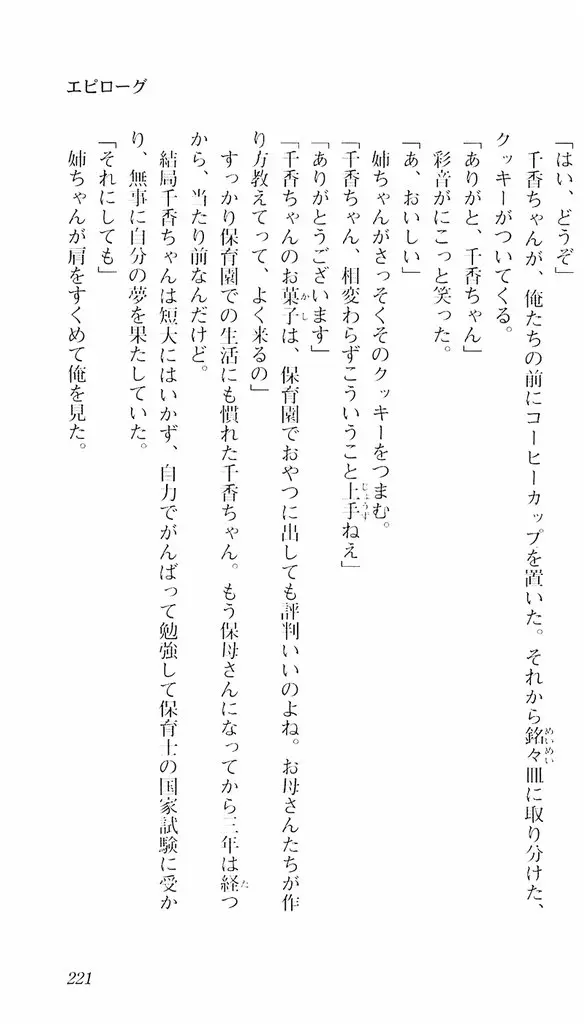 エピローグ
「はい、どうぞ」
千香ちゃんが、俺たちの前にコーヒーカップを置いた。それから銘々皿に取り分けた、
クッキーがついてくる。
「ありがと、千香ちゃん」
彩音がにこっと笑った。
「あ、おいしい」
姉ちゃんがさっそくそのクッキーをつまむ。
「千香ちゃん、相変わらずこういうこと上手ねえ」
「ありがとうございます」
「千香ちゃんのお菓子は、保育園でおやつに出しても評判いいのよね。お母さんたちが作
り方教えてって、よく来るの」
すっかり保育園での生活にも慣れた千香ちゃん。もう保母さんになってから三年は経つ
から、当たり前なんだけど。
結局千香ちゃんは短大にはいかず、自力でがんばって勉強して保育士の国家試験に受か
り、無事に自分の夢を果たしていた。
「それにしても」
姉ちゃんが肩をすくめて俺を見た。
221